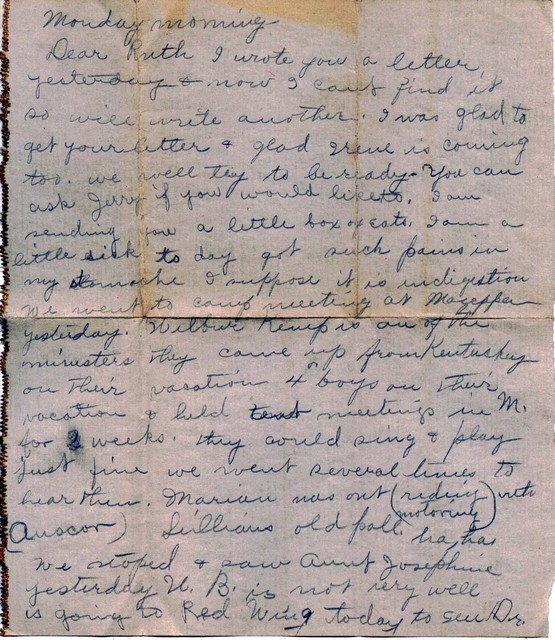 Monday morning
Dear Ruth I wrote you a letter
yesterday & now I cant find it
so will write another. I was glad to
get your letter & glad Irene is coming
too. we will try to be ready. You can
ask Jerry if you would like to. I am
sending you a little box of eats. I am a
little sick to day got such pains in
my stomache I suppose it is indigestion
We went to camp meeting at Mazeppa
yesterday. Wilbur Kemp is on of the
ministers they came up from Kentuckey
on their vacation 4 boys on their
vacation & held tent meetings in M.
for 2 weeks. they could sing & play
just fine we went several times to
hear them. Marian was out (riding motoring) with
(Anscor) Lillians old pall ha, has
We stoped & saw Aunt Josephine
yesterday U. B. is not very well
is going to Red Wing today to see Dr.